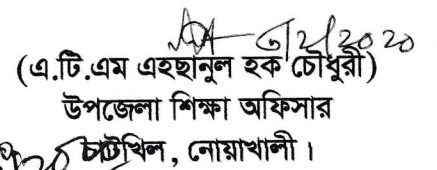 ৩/২/২০২০
(এ.টি.এম এহছানুল হক চৌধুরী)
উপজেলা শিক্ষা অফিসার
চাটখিল, নোয়াখালী।